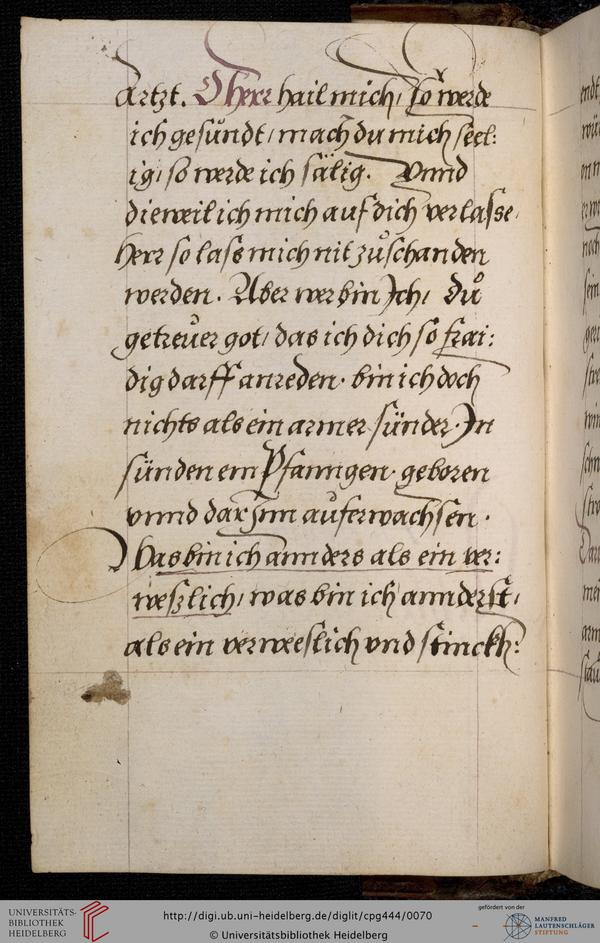 artzt. O herr hail mich, so werde
ich gesündt, mach du mich seel:
ig, so werde ich sälig. Vnnd
dieweil ich mich auf dich verlasse,
herr so lass mich nit zůschanden
werden. Aber wer bin Ich, Dů
getreuer got, das ich dich so frai:
dig darff anreden. bin ich doch
nichts als ein armer sünder. In
sünden em Pfanngen. geboren
vnnd dar Jnn auferwachsen.
Was bin ich annders als ein ver:
weßlich, was bin ich annderst,
als ein verweeslich vnd stinckh:
UNIVERSITÄTS-
BIBLIOTHEK
HEIDELBERG
http://digi.ub.uni-heidelberg.de/diglit/cpg444/0070
© Universitätsbibliothek Heidelberg
gefördert von der
MANFRED
LAUTENSCHLÄGER
STIFTUNG